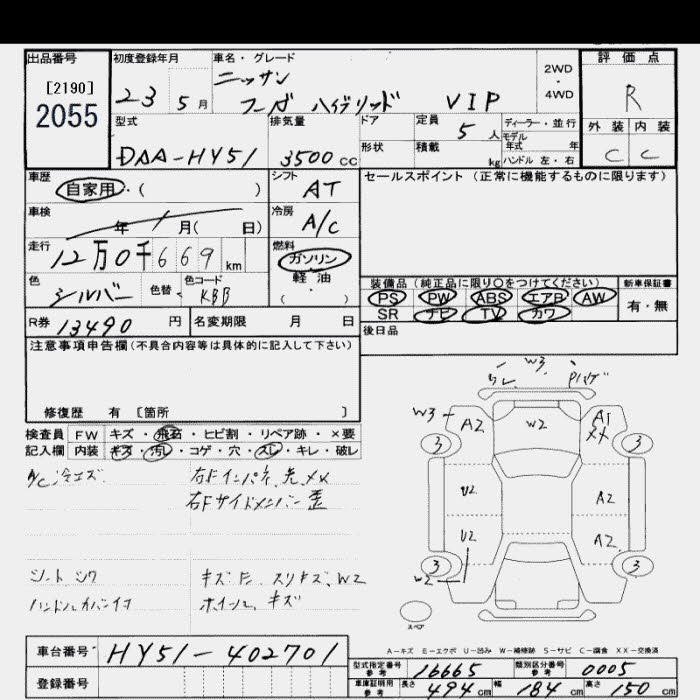 出品番号
[2190]
2055
初度登録年月
23 5月
車名・グレード
ニッサン
フーガ ハイブリッド VIP
2WD
・
4WD
評価点
R
外装 内装
C C
型式
DAA-HY51
排気量
3500 cc
ドア
形状
定員
5人
積載
kg
ディーラー・並行
モデル
年式 年
ハンドル 左・右
車歴
自家用・( )
シフト
AT
セールスポイント (正常に機能するものに限ります)
車検
年 月( 日)
冷房
A/C
走行
12万0千669km
燃料
ガソリン
軽油
( ・ )
色
シルバー
色替
色コード
KBB
装備品 (純正品に限り○をつけてください)
PS PW ABS エアB AW
SR ナビ TV カワ
新車保証書
有・無
R券 13490円
名変期限 月 日
後日品
注意事項申告欄(不具合内容等は具体的に記入して下さい)
修復歴 有 [箇所 ]
検査員 FW キズ・飛石・ヒビ割・リペア跡・×要
記入欄 内装 キズ・汚レ・コゲ・穴・スレ・キレ・破レ
A/C 冷エズ
右Fインパネ、先、メメ
右Fサイドメンバー 歪
シート シワ
キズ 、スリキズ、W2
ホイール キズ
W3
W3 A2 W2 A1
XX
3 3
U2 A2
U2 A2
3 3
W2
スペア
A-キズ E-エクボ U-凹み W-補修跡 S-サビ C-腐食 XX-交換済
車台番号 HY51-402701
登録番号
型式指定番号
参考
16665
類別区分番号
参考
0005
車庫証明用
参考
長さ 494cm 幅 184cm 高さ 150cm